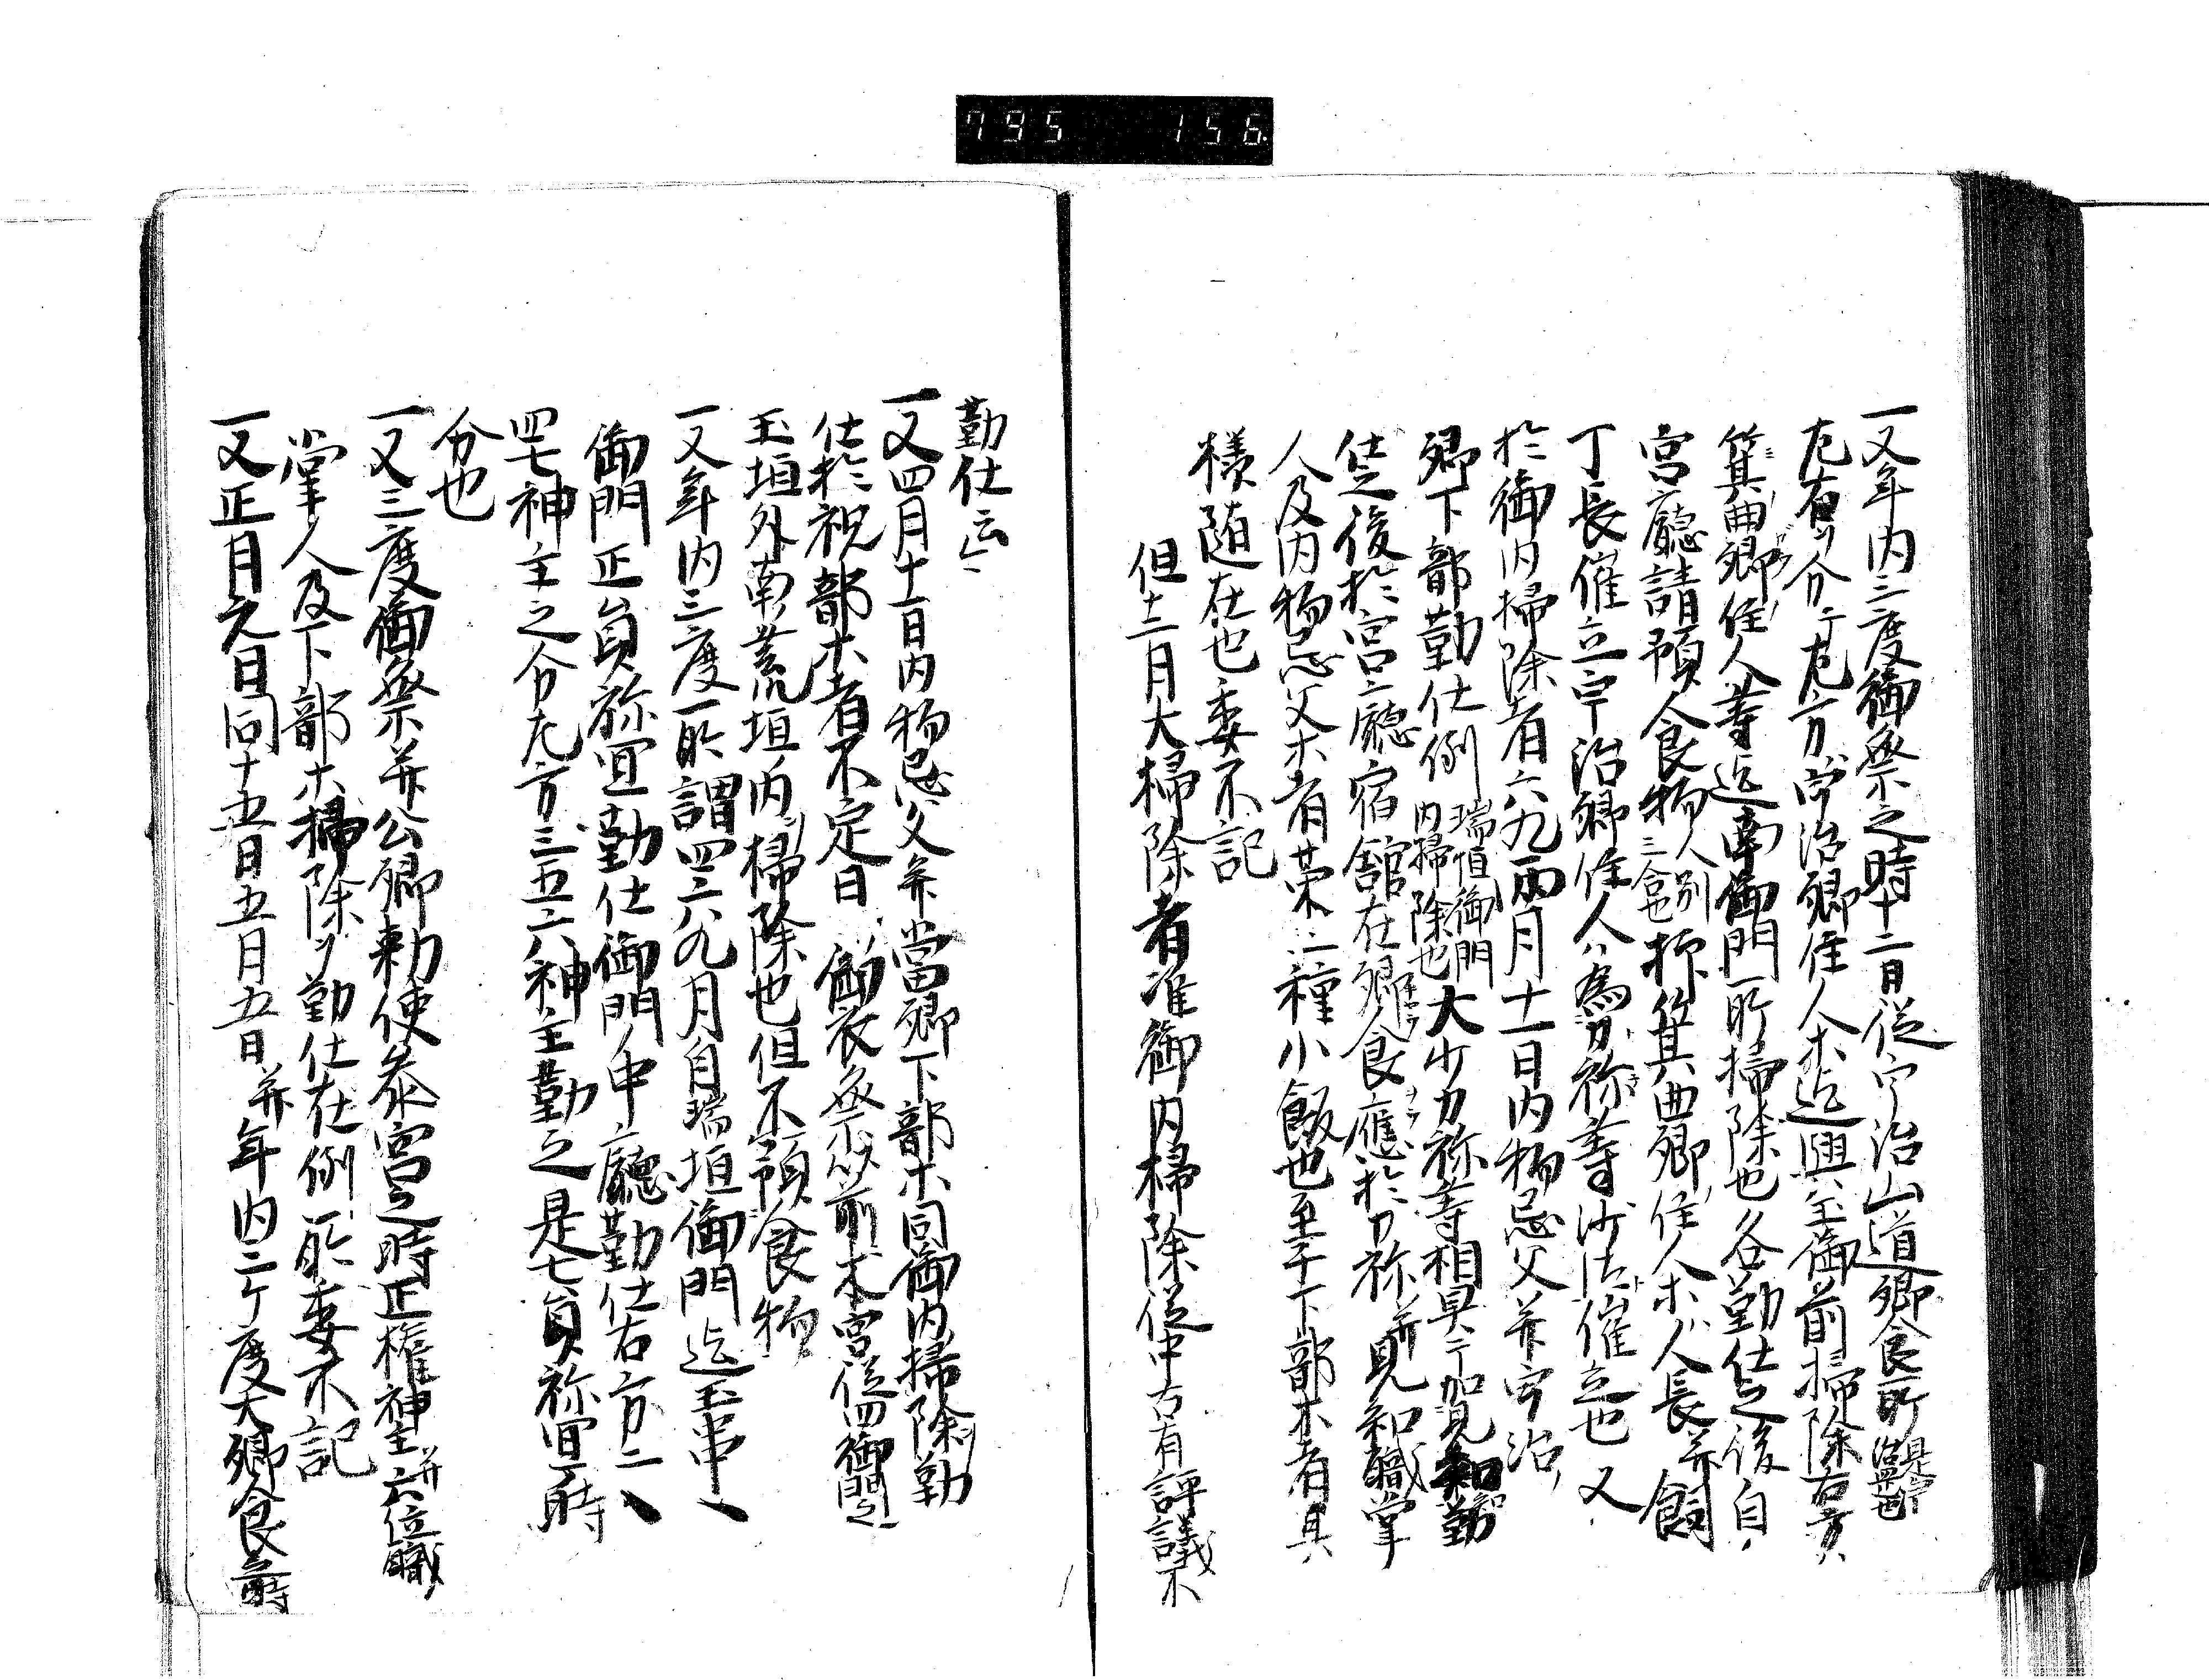 795 156
一又年内三度御祭之時十二日従宇治山道郷食所是宇治郷也
左右ヲ分テ左方ハ宇治郷住人木迄興玉御前掃除右方ハ
箕曲郷住人等迄南御門一所掃除也各勤仕之後自
宮廳請預食物人別三合也抑箕曲郷住人木ハ人長并飼
丁長催立宇治郷住人ハ為刀祢等沙汰催立也又
於御内掃除者六九両月十一日内物忌父并宇治
郷下部勤仕例瑞垣御門内掃除也大少刀祢等相具テ加見知勤
仕之後於宮廳宿舘在郷食應於刀祢并見知職掌
人及内物忌父木者菜二種小飯也至于下部木者其
様随在也委不記
但十二月大掃除者准御内掃除従中古有評議不
勤仕云々
一又四月十一日内物忌父并當郷下部木同御内掃除勤
仕於祝部木者不定日御衣祭以前本宮従四御門之
玉垣外南荒垣内掃除也但不預食物
一又年内三度一所謂四六八九月自瑞垣御門迄玉串
御門正員祢宜勤仕御門ノ中廳勤仕右方二
四七神主之分左方三五六八神主勤之是七員祢宜時
分也
一又三度御祭并公卿勅使参宮之時正権神主并六位職
掌人及下部木掃除ヲ勤仕在例所委不記
一又正月元日同十五日五月五日并年内二ケ度大郷食時